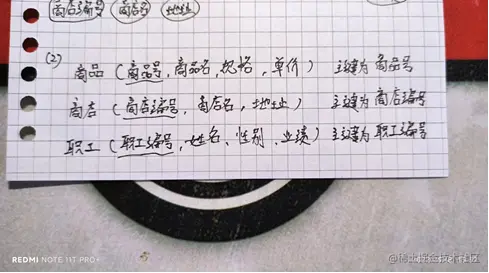 商店编号 商店名 地址
(2)
商品（商品号，商品名，规格，单价） 主键为商品号
商店（商店编号，商店名，地址） 主键为商店编号
职工（职工编号，姓名、性别，业绩）主键为职工编号
REDMI NOTE 11T PRO+
@稀土掘金技术社区